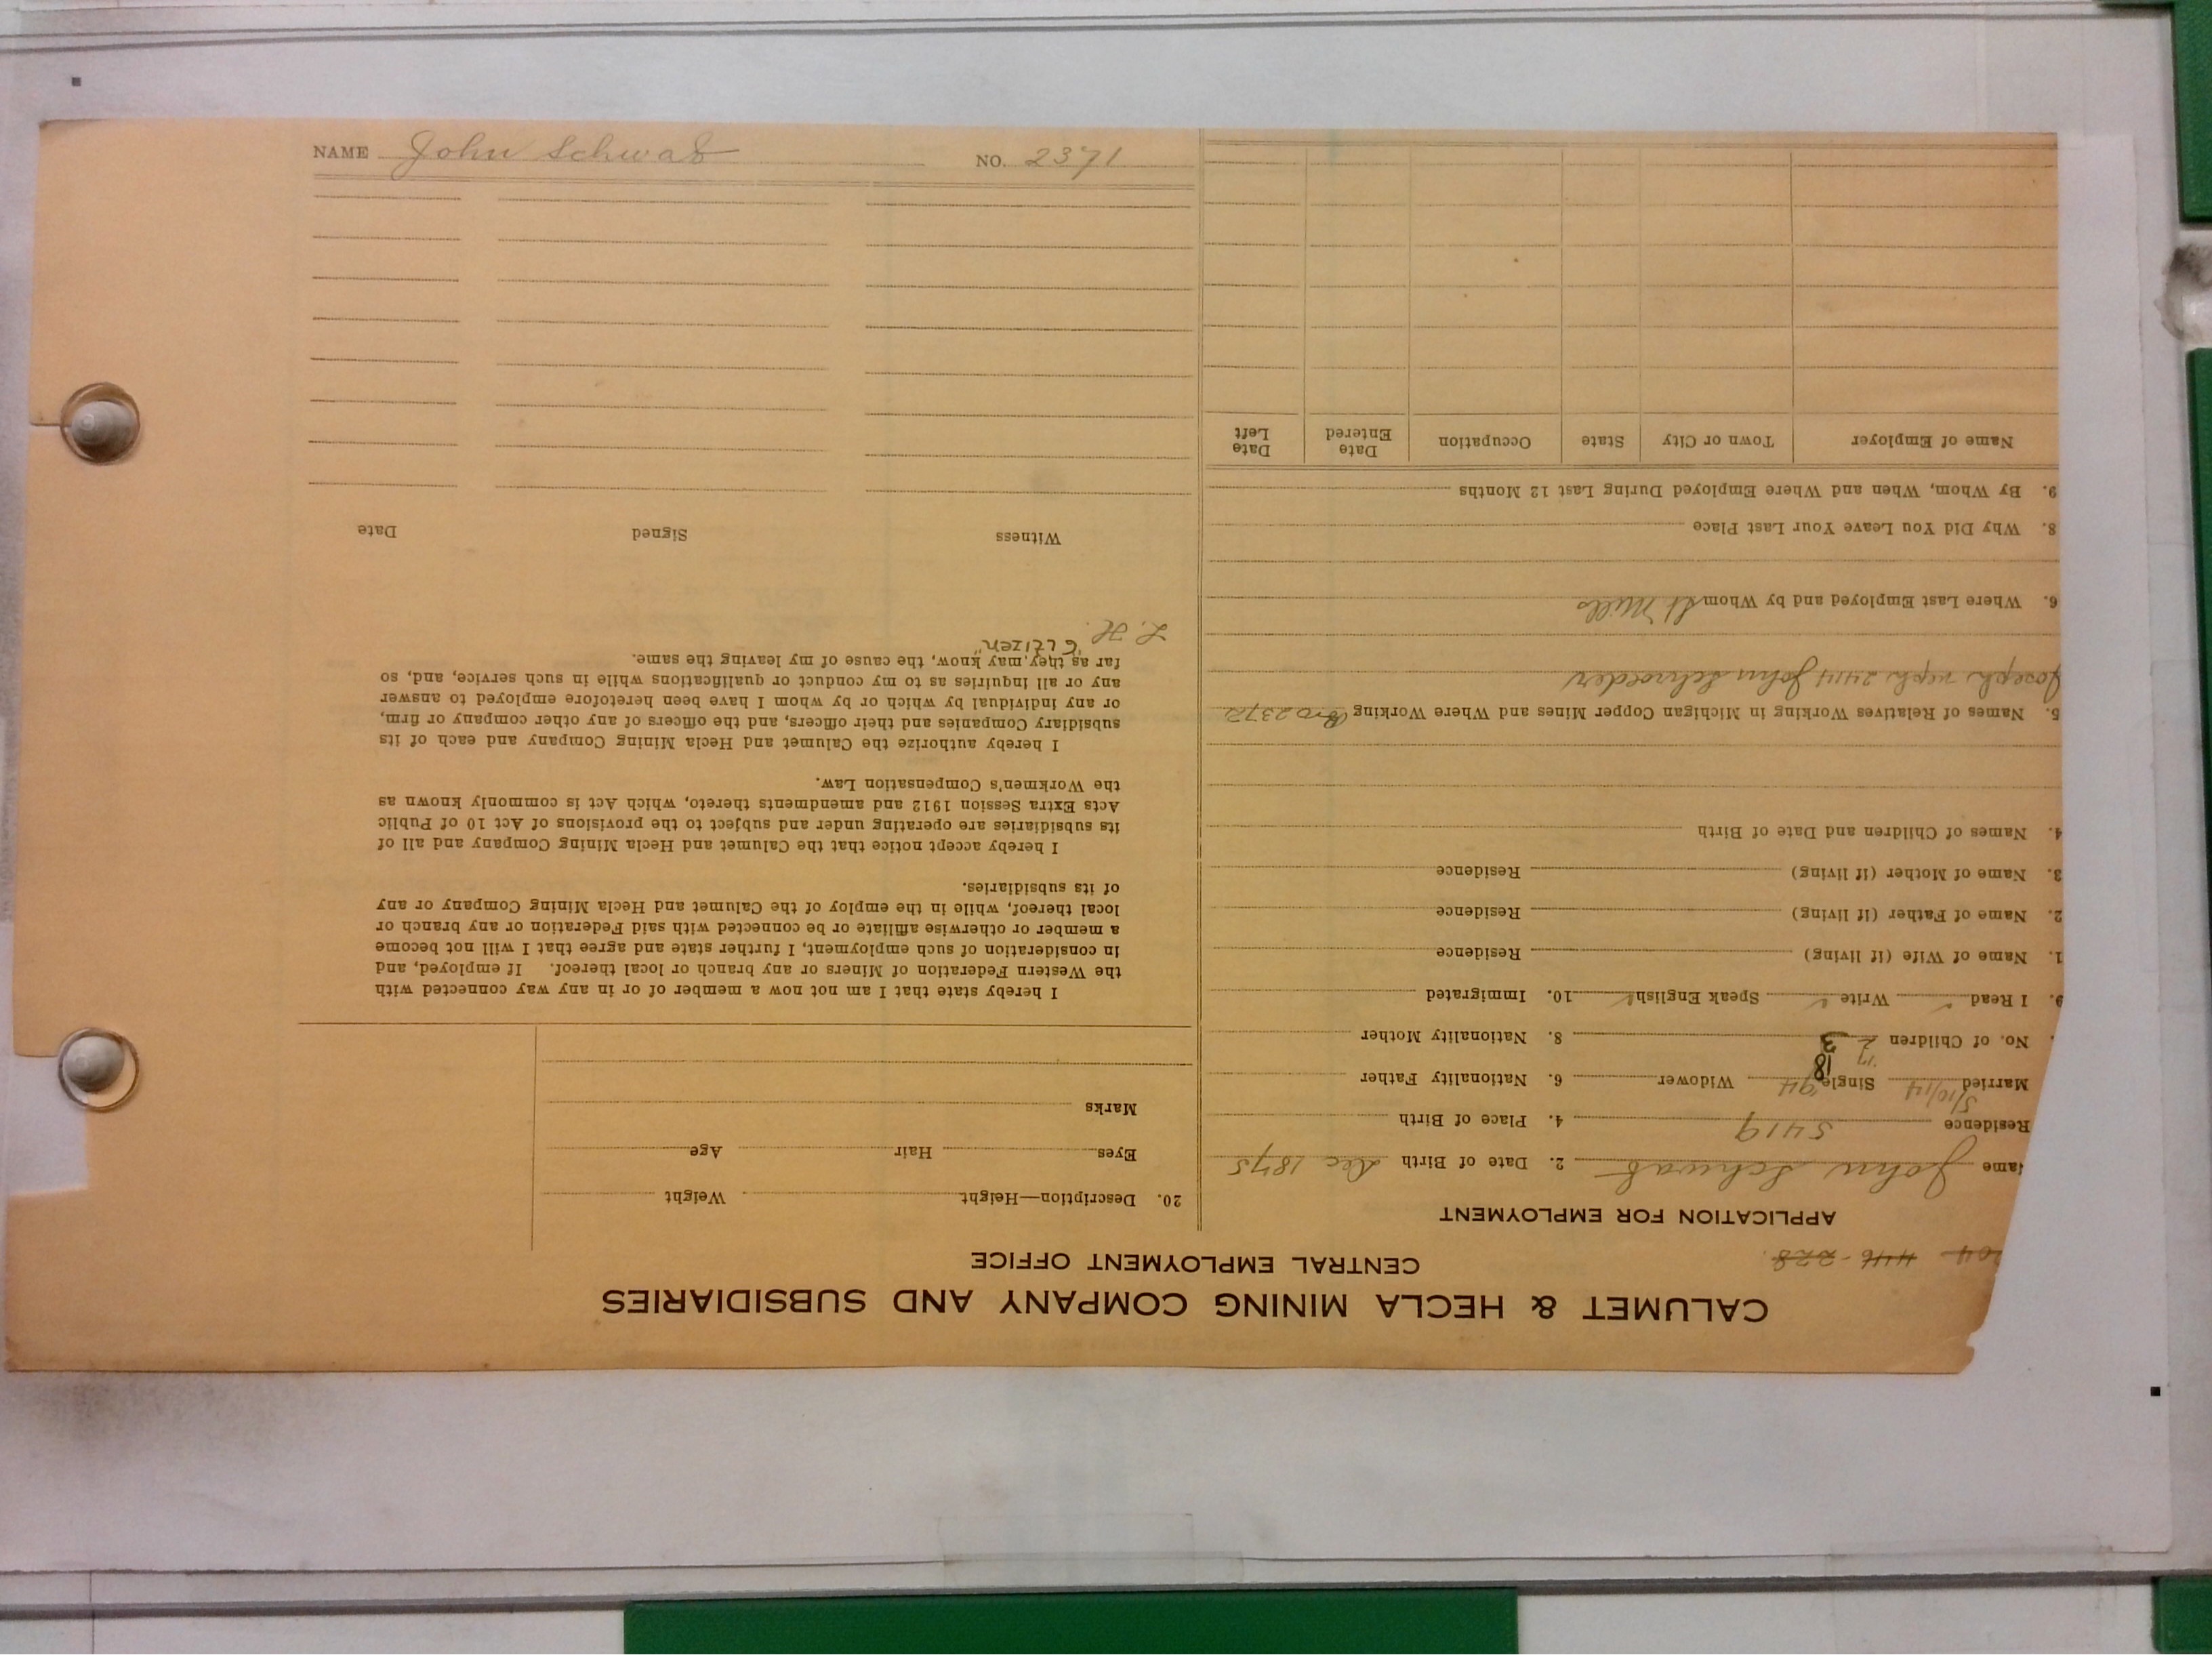 CALUMET & HECLA MINING COMPANY AND SUBSIDIARIES
CENTRAL EMPLOYMENT OFFICE
446 - 228
APPLICATION FOR EMPLOYMENT
ame John Schwab 2. Date of Birth Dec 1875
Residence 5419 4. Place of Birth
5/10/14
Married Single 94 18 Widower 6. Nationality Father
17
No. of Children 2 3 8. Nationality Mother
9. I Read ✓ Write ✓ Speak English ✓ 10. Immigrated
1. Name of Wife (if living) Residence
2. Name of Father (if living) Residence
3. Name of Mother (if living) Residence
4. Names of Children and Date of Birth
5. Names of Relatives Working in Michigan Copper Mines and Where Working Bro 2372
Joseph neph 2414 John Schroeder
6. Where Last Employed and by Whom St Mills
8. Why Did You Leave Your Last Place
9. By Whom, When and Where Employed During Last 12 Months
Name of Employer Town or City State Occupation Date Entered Date Left
20. Description—Height Weight
Eyes Hair Age
Marks
I hereby state that I am not now a member of or in any way connected with
the Western Federation of Miners or any branch or local thereof. If employed, and
in consideration of such employment, I further state and agree that I will not become
a member or otherwise affiliate or be connected with said Federation or any branch or
local thereof, while in the employ of the Calumet and Hecla Mining Company or any
of its subsidiaries.
I hereby accept notice that the Calumet and Hecla Mining Company and all of
its subsidiaries are operating under and subject to the provisions of Act 10 of Public
Acts Extra Session 1912 and amendments thereto, which Act is commonly known as
the Workmen's Compensation Law.
I hereby authorize the Calumet and Hecla Mining Company and each of its
subsidiary Companies and their officers, and the officers of any other company or firm,
or any individual by which or by whom I have been heretofore employed to answer
any or all inquiries as to my conduct or qualifications while in such service, and, so
far as they may know, the cause of my leaving the same.
"Citizen"
L. H.
Witness Signed Date
NAME John Schwab NO. 2371